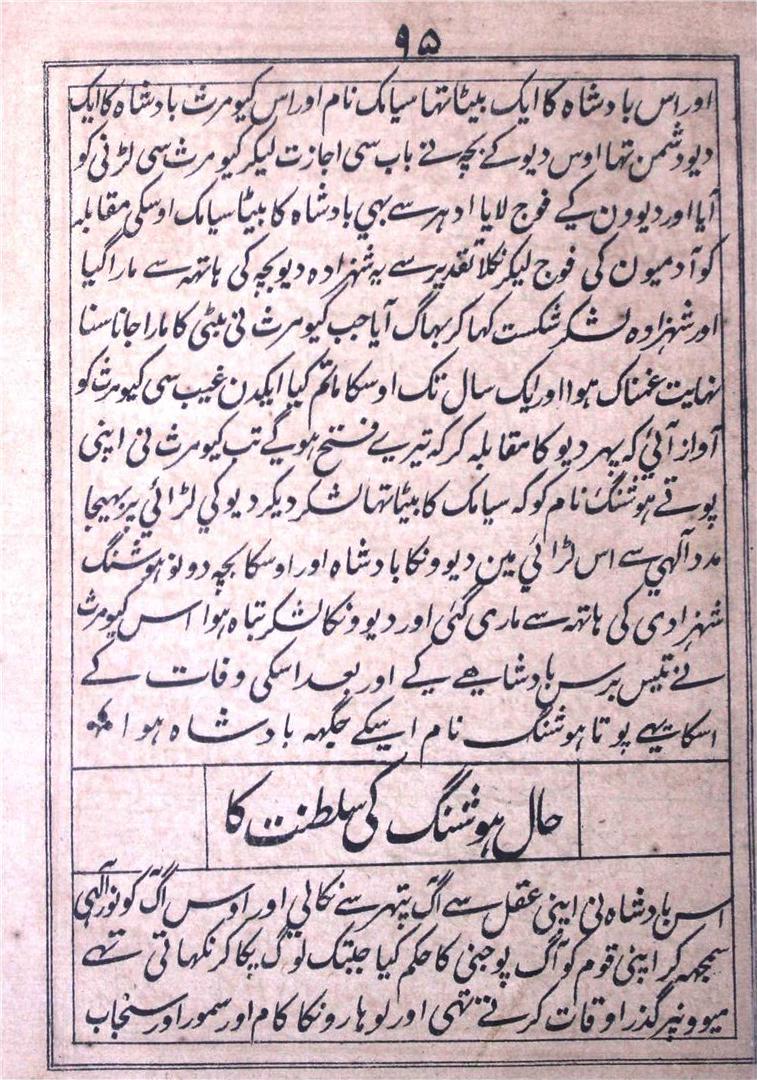 ۹۵
اور اس بادشاہ کا ایک بیٹا تہا سیامک نام اور اس کیومرث بادشاہ کا ایک
دیو دشمن تہا اوس دیو کے بچہ نے باپ سی اجازت لیکر کیومرث سی لڑنی کو
آیا اور دیوون کے فوج لایا ادہر سے بہی بادشاہ کا بیٹا سیامک اوسکی مقابلہ
کو آدمیون کی فوج لیکر نکلا تقدیر سے یہ شہزادہ دیو بچہ کی ہاتہہ سے مارا گیا
اور شہزادہ لشکر شکست کہا کر بہاگ آیا جب کیومرث نی بیٹی کا مارا جانا سنا
نہایت غمناک ہوا اور ایک سال تک اوسکا ماتم کیا ایکدن غیب سی کیومرث کو
آواز آئی کہ پہر دیو کا مقابلہ کر کہ تیرے فتح ہوگے تب کیومرث نی اپنی
پوتے ہوشنگ نام کو کہ سیامک کا بیٹا تہا لشکر دیکر دیو کی لڑائی پر بہیجا
مدد آلہی سے اس لڑائی مین دیوونکا بادشاہ اور اوسکا بچہ دونو ہوشنگ
شہزادی کی ہاتہہ سے ماری گئی اور دیوونکا لشکر تباہ ہوا اس کیومرث
نے تیس برس بادشاہے کے اور بعد اسکی وفات کے
اسکا یہے پوتا ہوشنگ نام اسکے جگہہ بادشاہ ہوا
حال ہوشنگ کی سلطنت کا
اس بادشاہ نی اپنی عقل سے آگ پتہر سے نکالی اور اوس آگ کو نور آلہی
سمجہہ کر اپنی قوم کو آگ پوجنی کا حکم کیا جبتک لوگ پکا کر نکہاتی تہے
میوونپر گذر اوقات کرتے تہی اور لوہارونکا کام اور سمور اور سنجاب